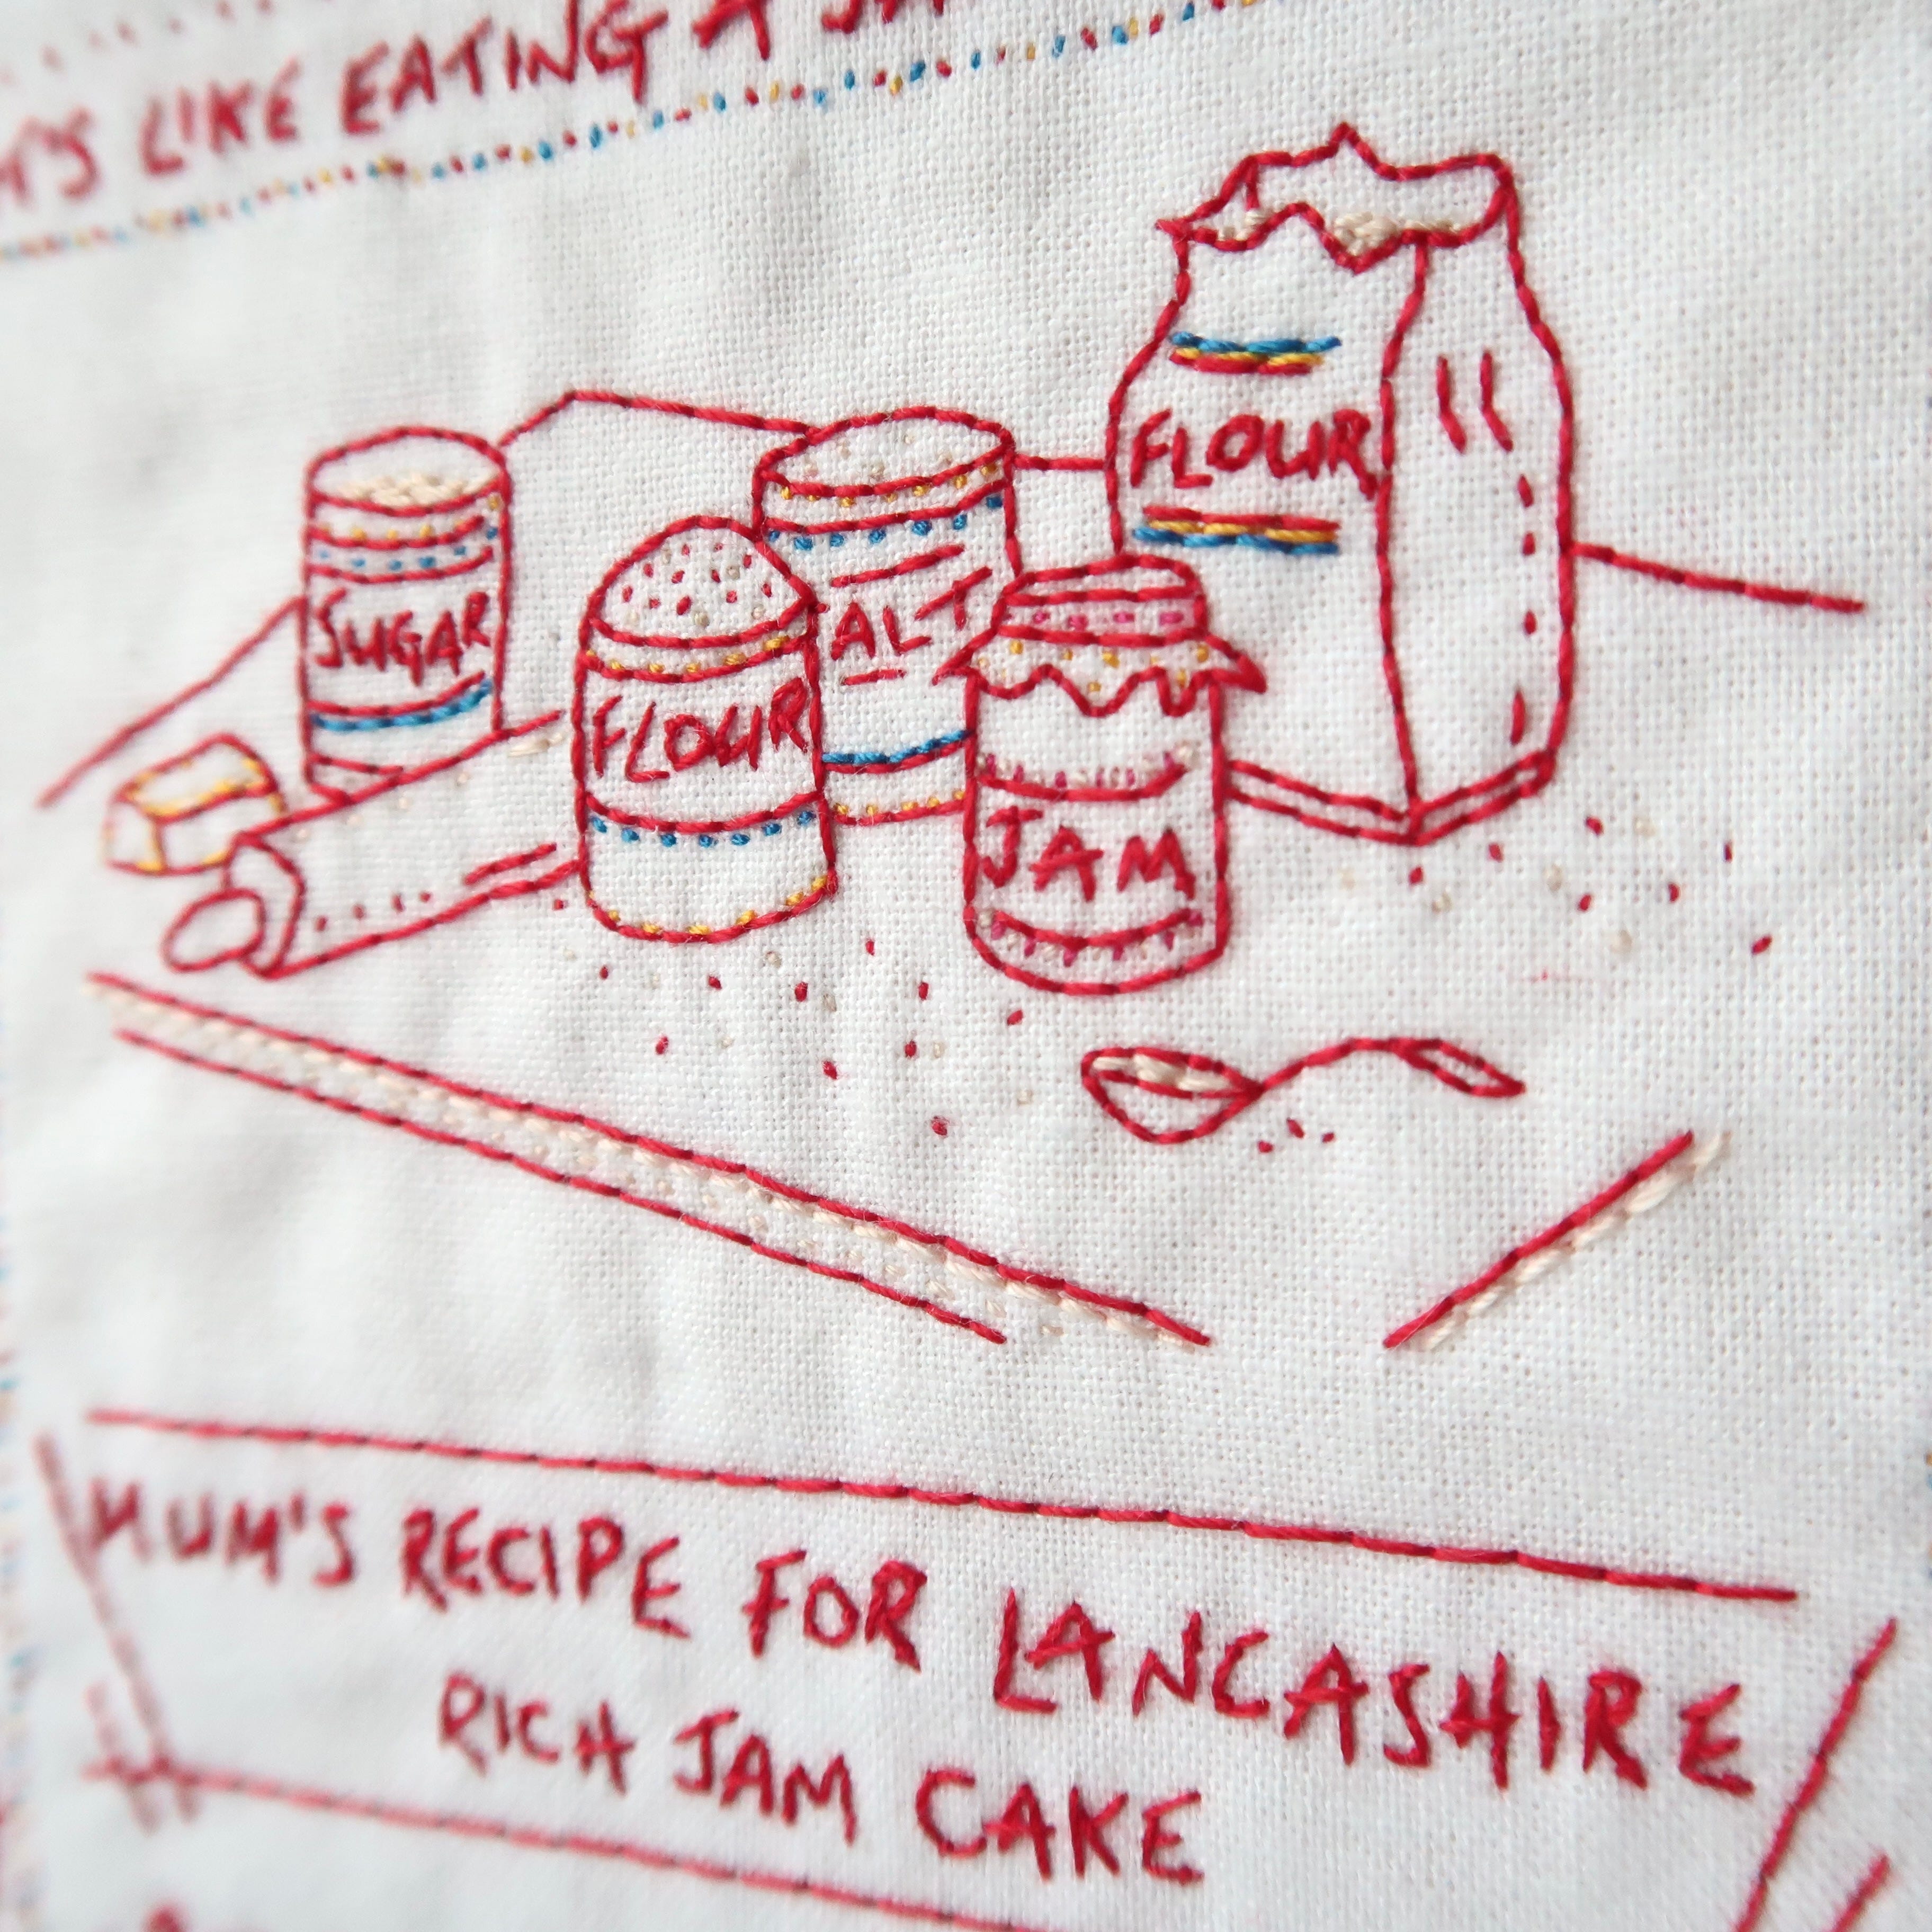 LIKE EATING A
SUGAR
FLOUR
ALT
FLOUR
JAM
MUM'S RECIPE FOR LANCASHIRE
RICH JAM CAKE